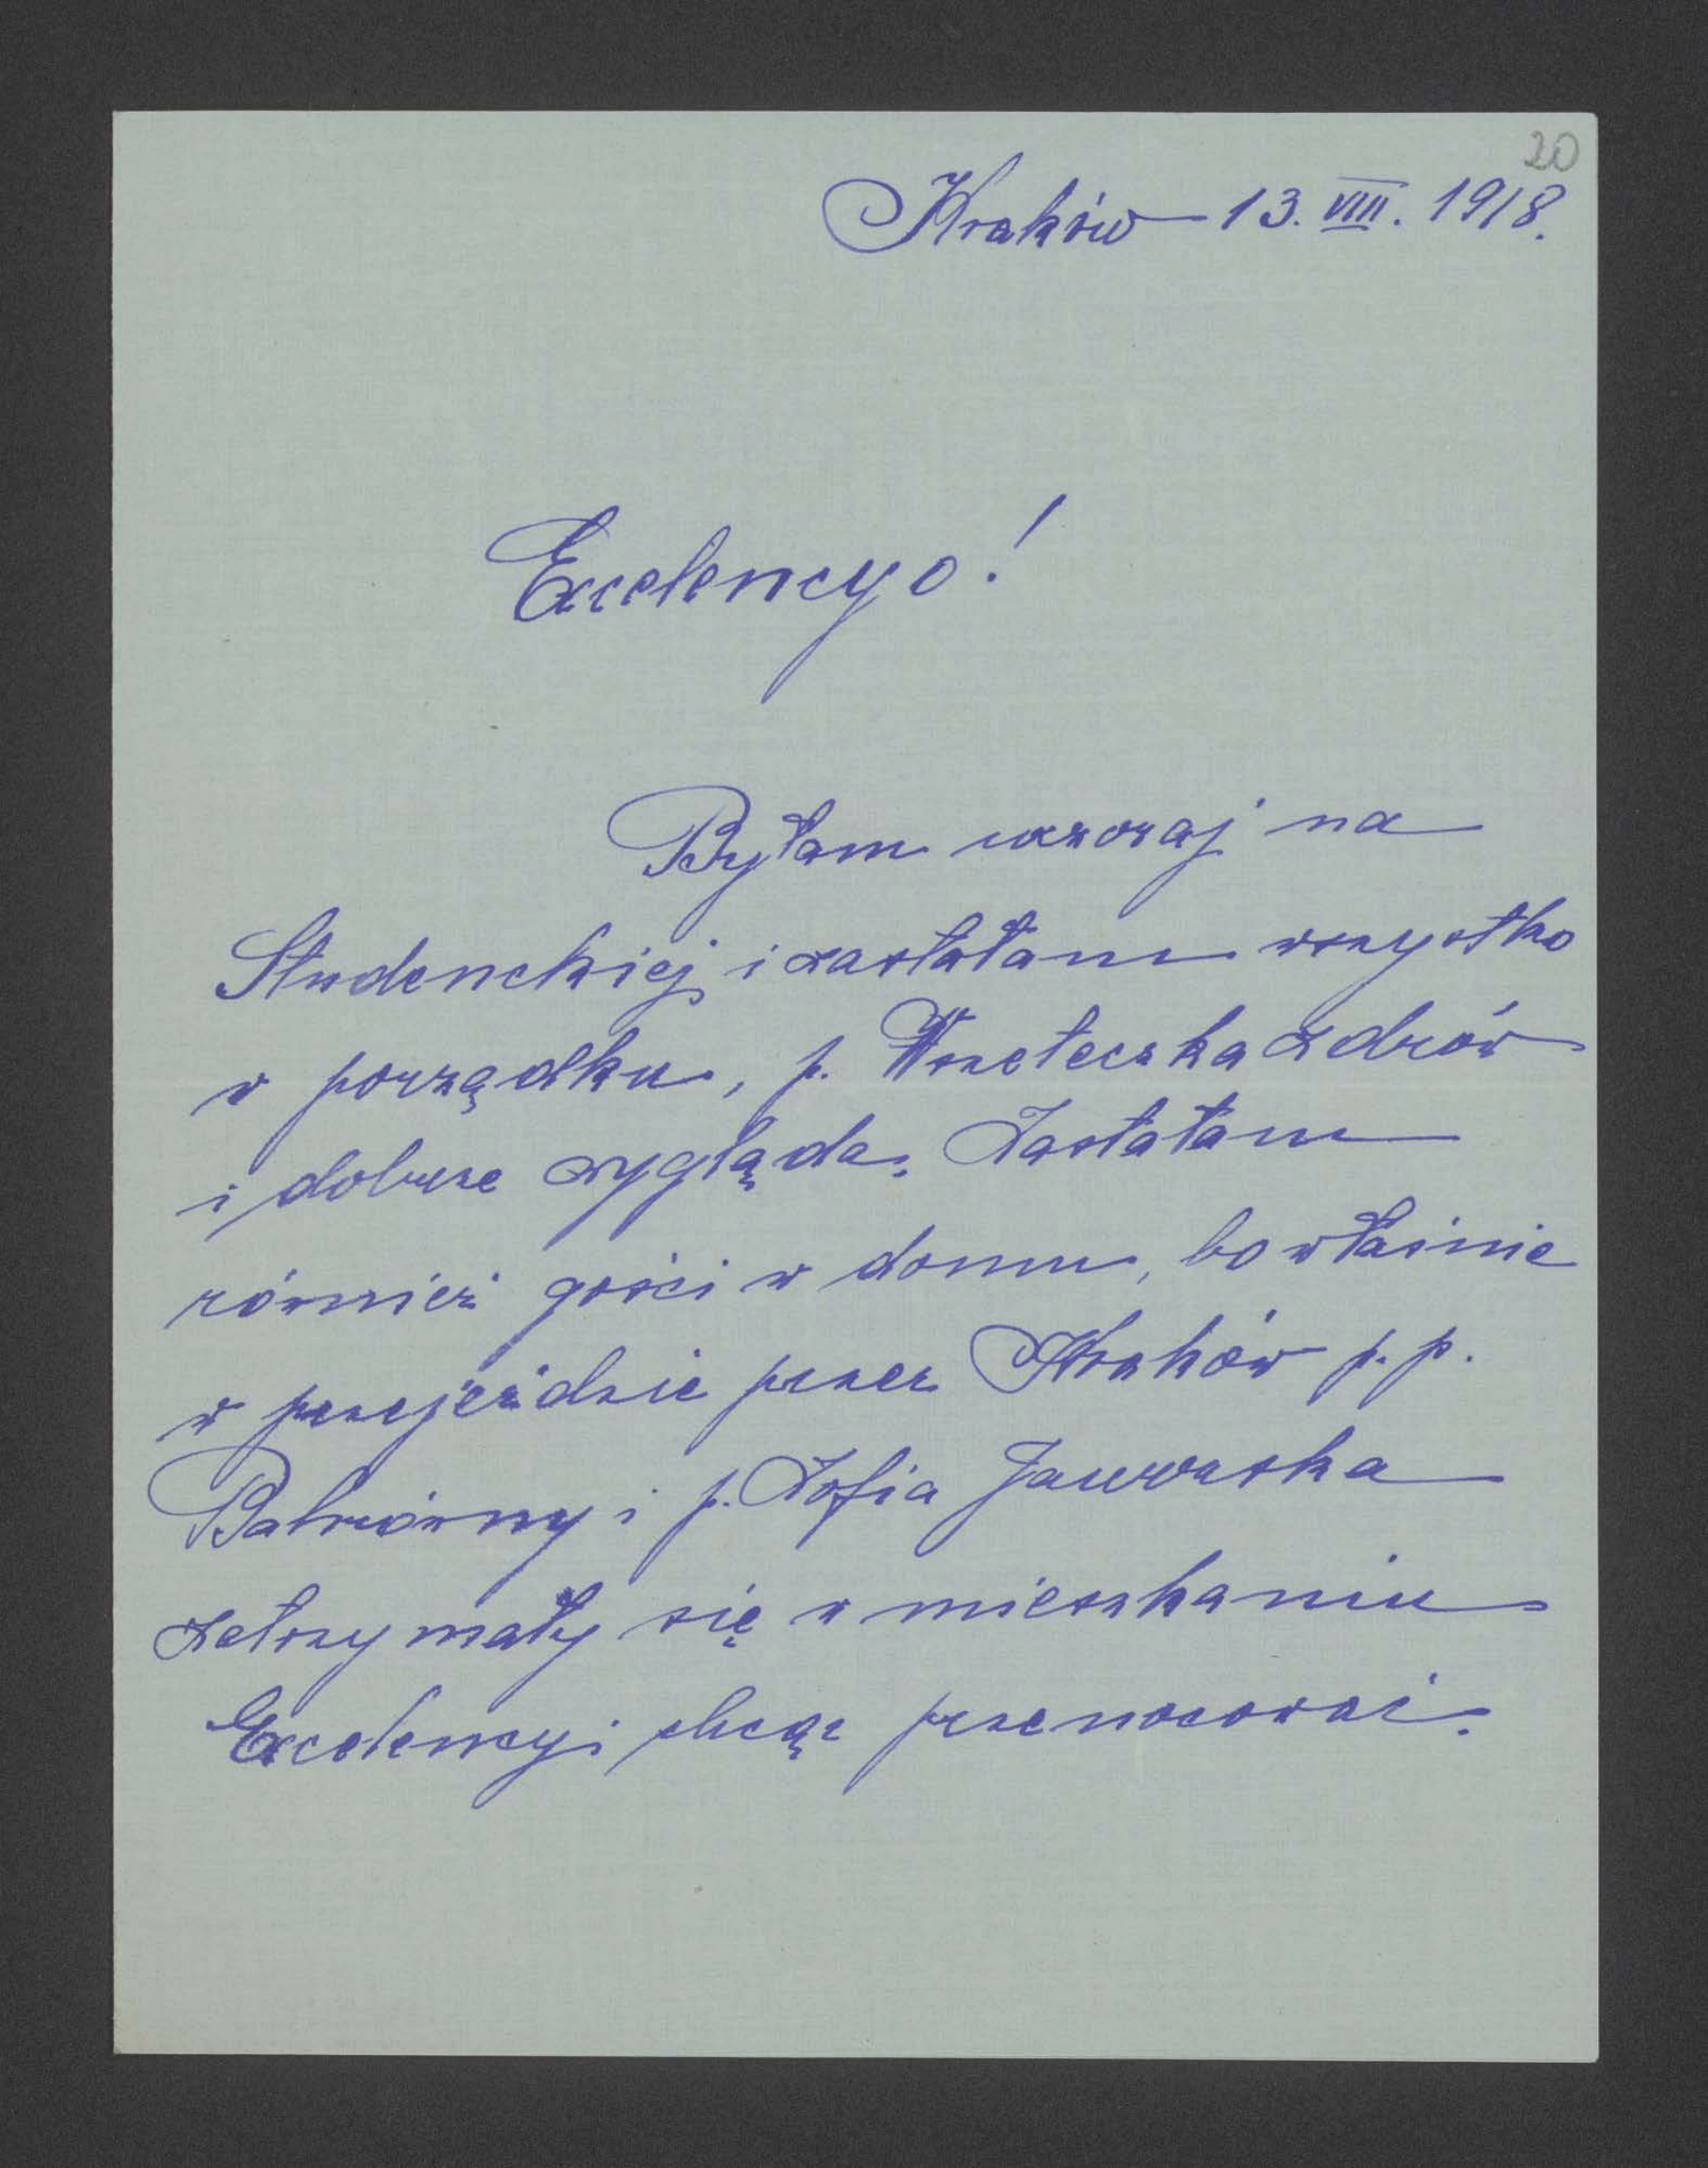 20
Kraków 13. VIII. 1918.
Excelencyo!
Byłam wczoraj na
Studenckiej i zastałam wszystko
w porządku, p. Wszeteczka zdrów
i dobrze wygląda. Zastałam
również gości w domu, bo właśnie
w przejeździe przez Kraków p.p.
i p. Zofia Jaworska
zatrzymały się w mieszkaniu
Excelencyi chcąc przenocować.